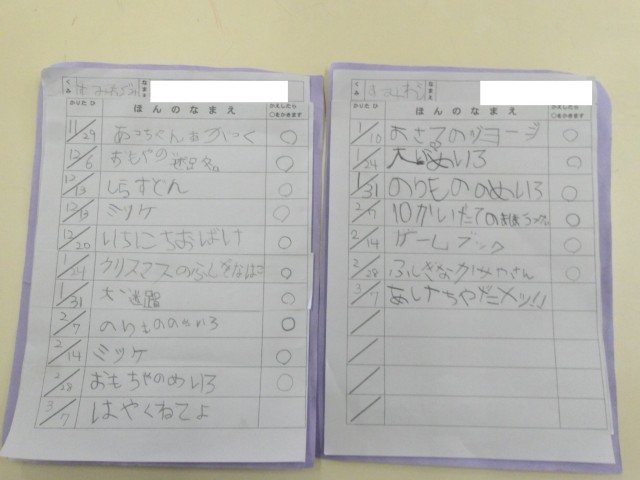 くみ なまえ
かりたひ ほんのなまえ かえしたら○をかきます
11/29 あっちゃんあがつく ○
12/6 おもやの ○
12/13 しらすどん ○
12/13 ミッケ ○
12/20 いちにちおばけ ○
1/24 クリスマスのふしぎなはこ ○
1/31 大迷路 ○
2/7 のりもののめいろ ○
2/14 ミッケ ○
2/28 おもちゃのめいろ ○
3/7 はやくねてよ
くみ なまえ
かりたひ ほんのなまえ かえしたら○をかきます
1/10 おさるのジョージ ○
1/24 大めいろ ○
1/31 のりもののめいろ ○
2/7 10かいだての ○
2/14 ゲームブック ○
2/28 ふしぎなかみやさん ○
3/7 あけちゃダメッ!!